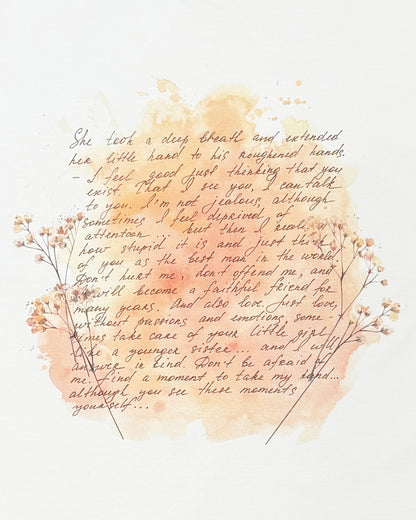 She took a deep breath and extended
her little hand to his roughened hands.
- I feel good just thinking that you
exist. That I see you, I can talk
to you. I'm not jealous, although
sometimes I feel deprived of
attention ... but then I reali
how stupid it is and just think
of you as the best man in the world.
Don't hurt me, don't offend me, and
I will become a faithful friend for
many years. And also love. Just love,
without passions and emotions, some-
times take care of your little girl
like a younger sister ... and I will
answer in kind. Don't be afraid of
me. Find a moment to take my hand...
although you see these moments
yourself...